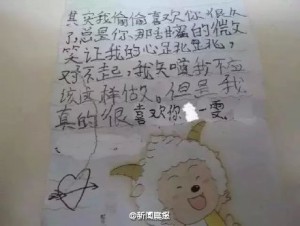 其实我偷偷喜欢你很久
了总是你那甜的微
笑让我的心
对不起，我知道我不应
该这样做。但是我
真的很喜欢你 一雯
@新闻晨报